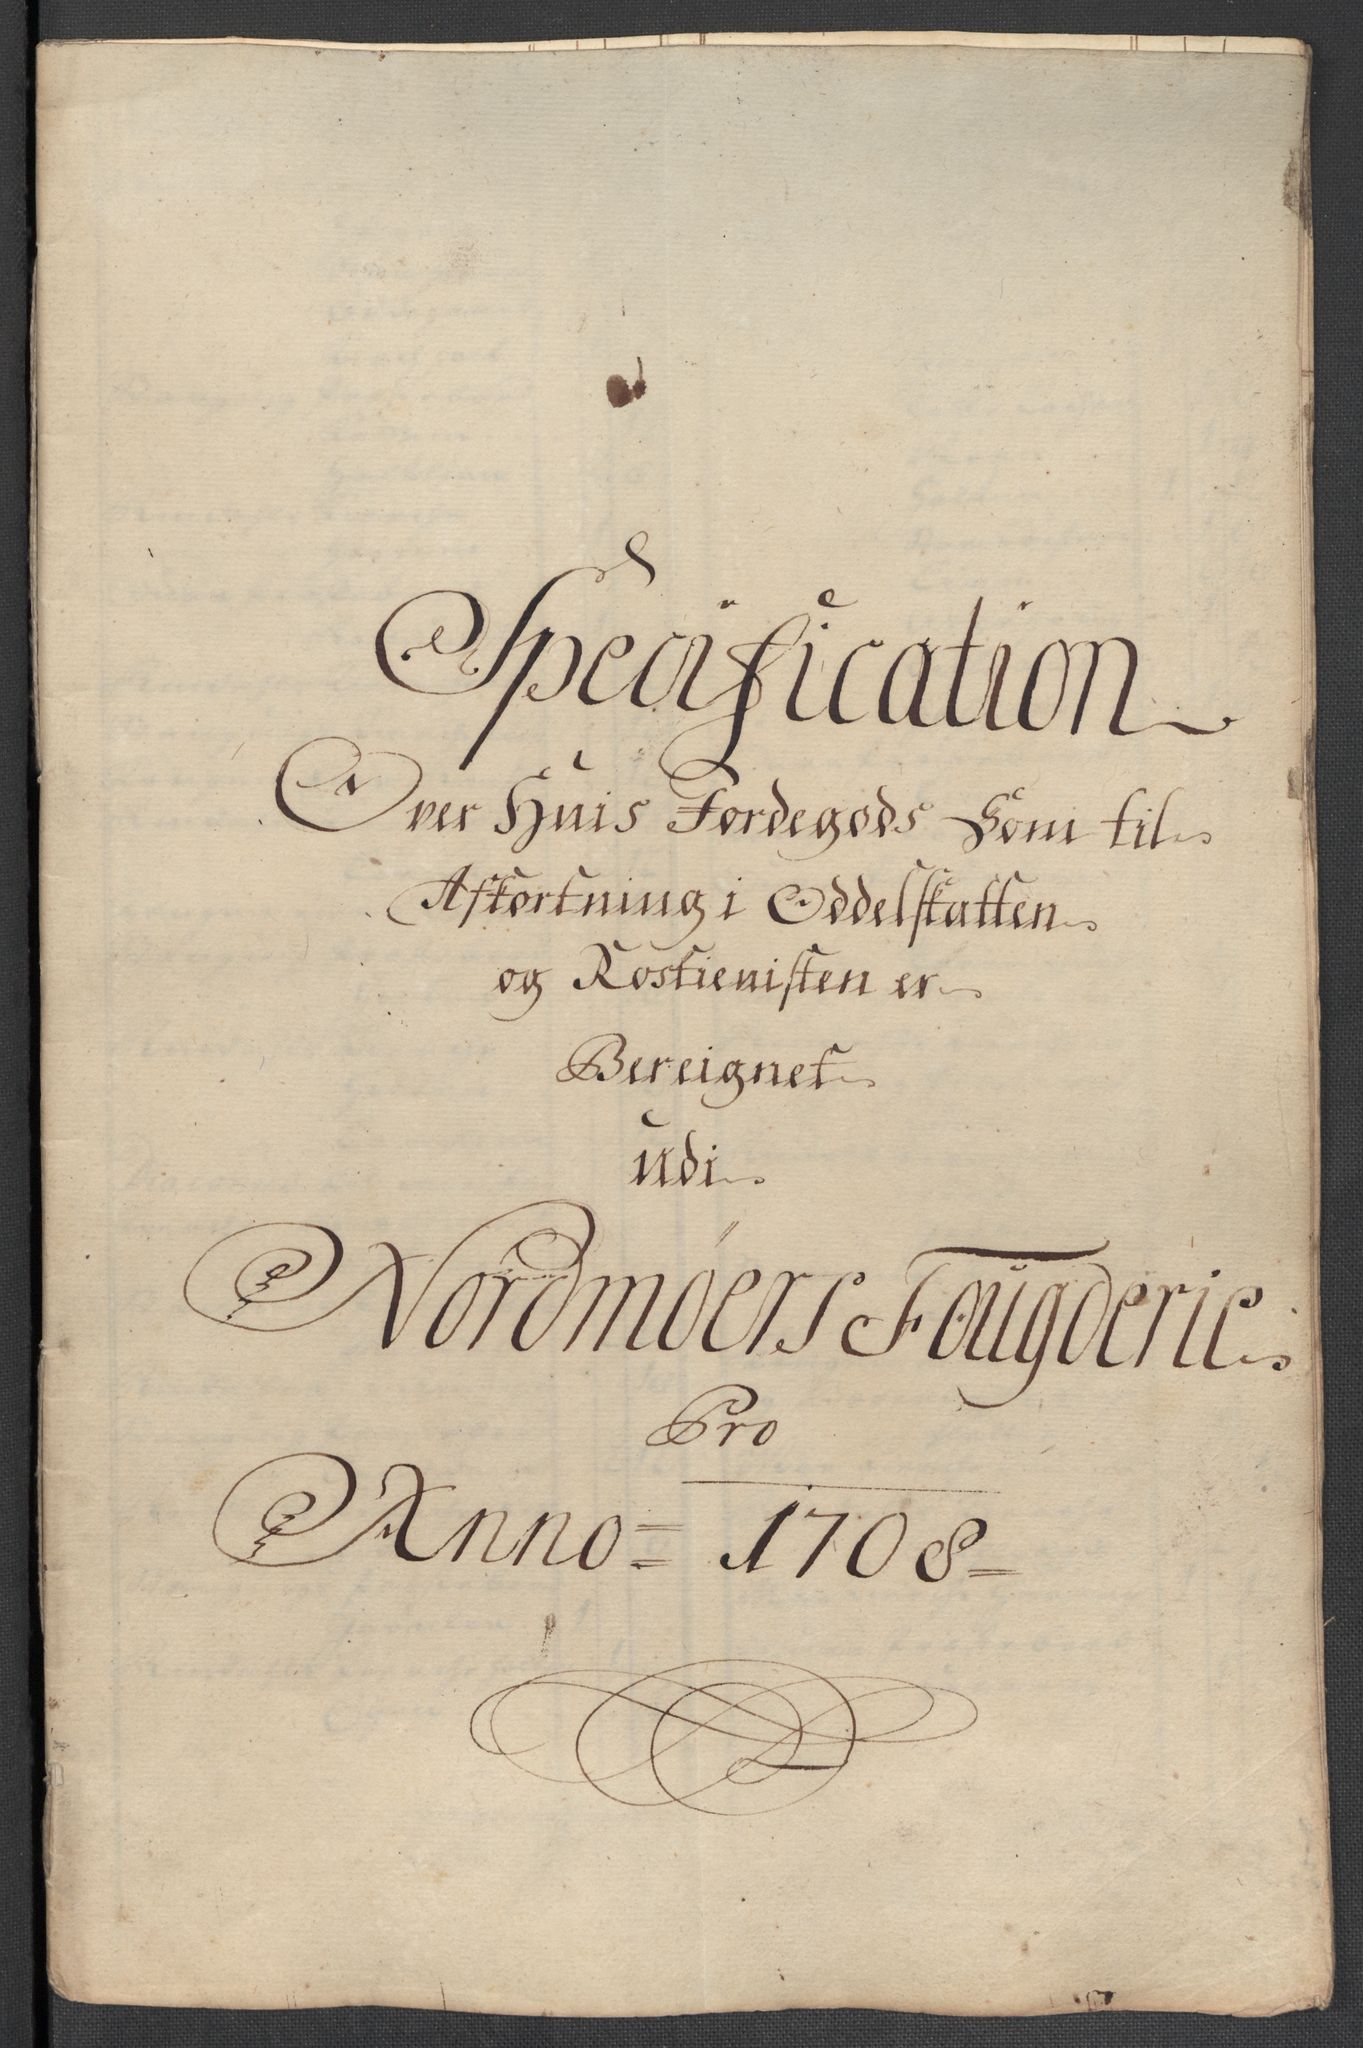 Specification
Over Huis Jordegods Som til
Afkortning i Oddelskatten
og Rostienisten er
Bereignet
udi
Nordmøers Fougderie
Pro
Anno = 1708 =